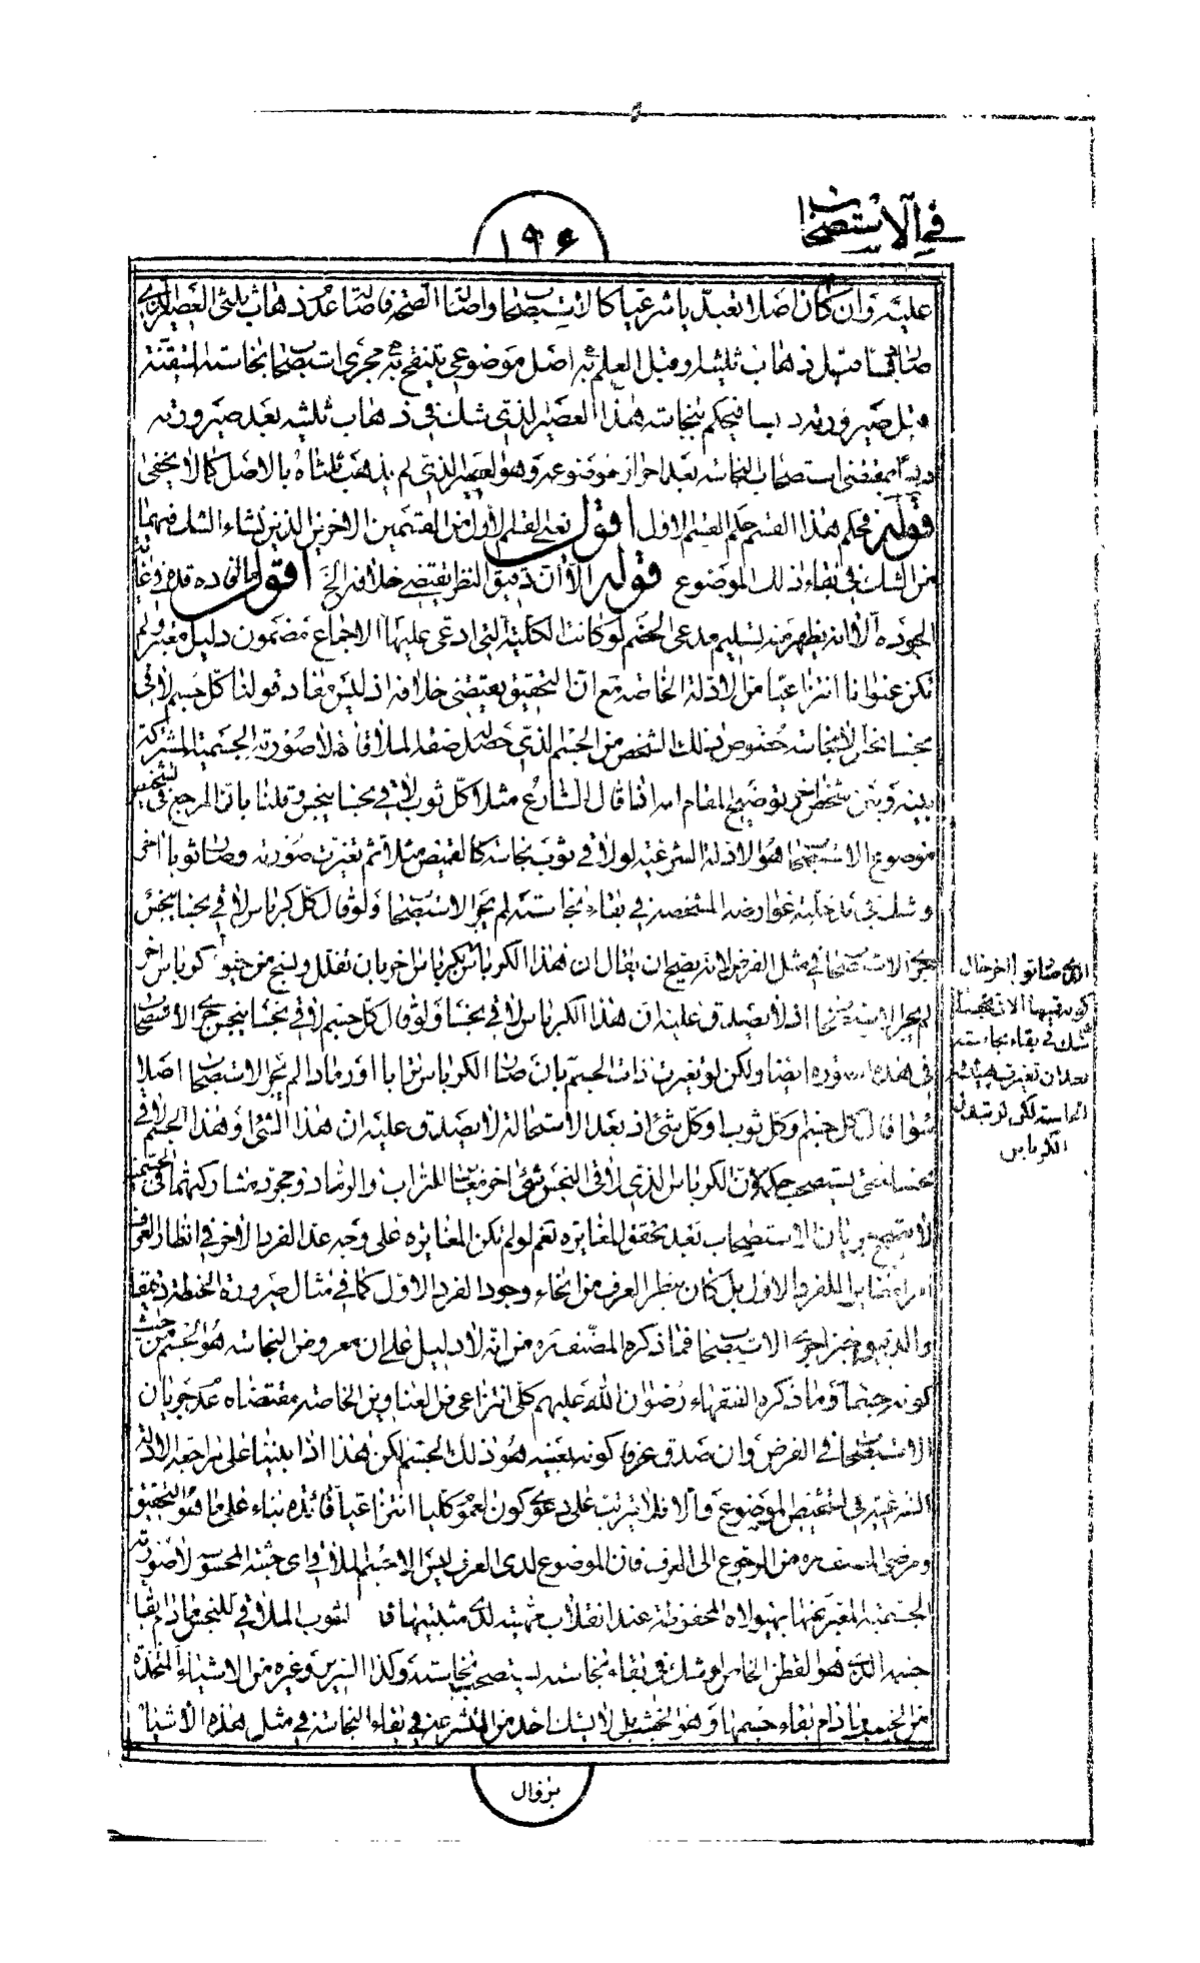 في الاستصحاب
١٩۶
عليه وان كان اصلا تعبديا شرعيا كالاستصحاب واصالة الصحة فاصالة عدم ذهاب ثلثي العصير الذي
صار قبل ذهاب ثلثيه وقبل العلم به اصل موضوعي يتنقح به مجرى استصحاب نجاسته المتيقنة
قبل صيرورته دبسا فيحكم بنجاسة هذا العصير الذي شك في ذهاب ثلثيه بعد صيرورته
دبسا بمقتضى استصحاب النجاسة بعد احراز موضوعه وهو العصير الذي لم يذهب ثلثاه بالاصل كما لا يخفى
قوله فحكم هذا القسم حكم القسم الاول اقول يعني القسم الاول من القسمين الاخرين الذين نشاء الشك فيهما
من الشك في بقاء ذلك الموضوع قوله الا ان دقيق النظر يقتضي خلافه الخ اقول ما افاده قده في غاية
الجودة الا انه يظهر منه تسليم مدعى الخصم لو كانت الكلية التي ادعى عليها الاجماع مضمون دليل معتبر ولم
تكن عنوانا انتزاعيا من الادلة الخاصة مع ان التحقيق يقتضي خلافه اذ ليس مفاد قولنا كل جسم لاقى
نجسا نجس الا نجاسة خصوص ذلك الشخص من الجسم الذي حصل صفة الملاقاة لا صورته الجسمية المشتركة
بينه وبين شخص اخر توضيح المقام انه اذا قال الشارع مثلا كل ثوب لاقى نجسا ينجس وقلنا بان المرجع في تشخيص
موضوع الاستصحاب هو الادلة الشرعية لو لاقى ثوب نجاسة كالقميص مثلا ثم تغيرت صورته وصار ثوبا اخر
وشك في مدخلية عوارضه المشخصة في بقاء نجاسته لم يجر الاستصحاب ولو قال كل كرباس لاقى نجسا ينجس
يجري الاستصحاب في مثل الفرض لانه يصح ان يقال ان هذا الكرباس كرباس اخر بان تفلل ونسج من خيوطه كرباس اخر
لم يجر الاستصحاب اذ لا يصدق عليه ان هذا الكرباس لاقى نجسا ولو قال كل جسم لاقى نجسا ينجس جرى الاستصحاب
في هذه الصورة ايضا ولكن لو تغيرت ذات الجسم بان صار الكرباس ترابا او رمادا لم يجر الاستصحاب اصلا
سواء قال كل جسم وكل ثوب او كل شئ اذ بعد الاستحالة لا يصدق عليه ان هذا الشئ او هذا الجسم لاقى
نجسا حتى يستصحب حكمه لان الكرباس الذي لاقى النجس شئ اخر مغاير للتراب والرماد ومجرد مشاركتهما في الجسمية
لا يصحح جريان الاستصحاب بعد تحقق المغايرة نعم لو لم تكن المغايرة على وجه عد الفرد الاخر في انظار العرف
امرا مغايرا للفرد الاول بل كان بنظر العرف من انحاء وجود الفرد الاول كما في مثال صيرورة الحنطة دقيقا
والدقيق خبزا جرى الاستصحاب فما ذكره المصنف ره من انه لا دليل على ان معروض النجاسة هو الجسم من حيث
كونه جسما وما ذكره الفقهاء رضوان الله عليهم كلي انتزاعي من العناوين الخاصة مقتضاه عدم جريان
الاستصحاب في الفرض وان صدق عرفا كونه بعينه هو ذلك الجسم لكن هذا اذا بنينا على مراجعة الادلة
الشرعية في تشخيص الموضوع والا فلا يترتب على دعوى كون العموم كليا انتزاعيا فائدة بناء على ما هو التحقيق
ومرضي المصنف ره من الرجوع الى العرف فان الموضوع لدى العرف ليس الا جسم الملاقي اي جثته المحسوسة لا صورته
الجسمية المعبر عنها بهيولاه المحفوظة عند انقلاب الثوب الملاقي للنجس ما دام بقاء
جسمه الذي هو القطن الخاص لو شك في بقاء نجاسته يستصحب نجاسته وكذا السرير وغيره من الاشياء المتخذة
من الخشب ما دام بقاء جسمها وهو الخشب بل لا يشك احد من المتشرعة في بقاء النجاسة في مثل هذه الاشياء
الكرباس
بزوال